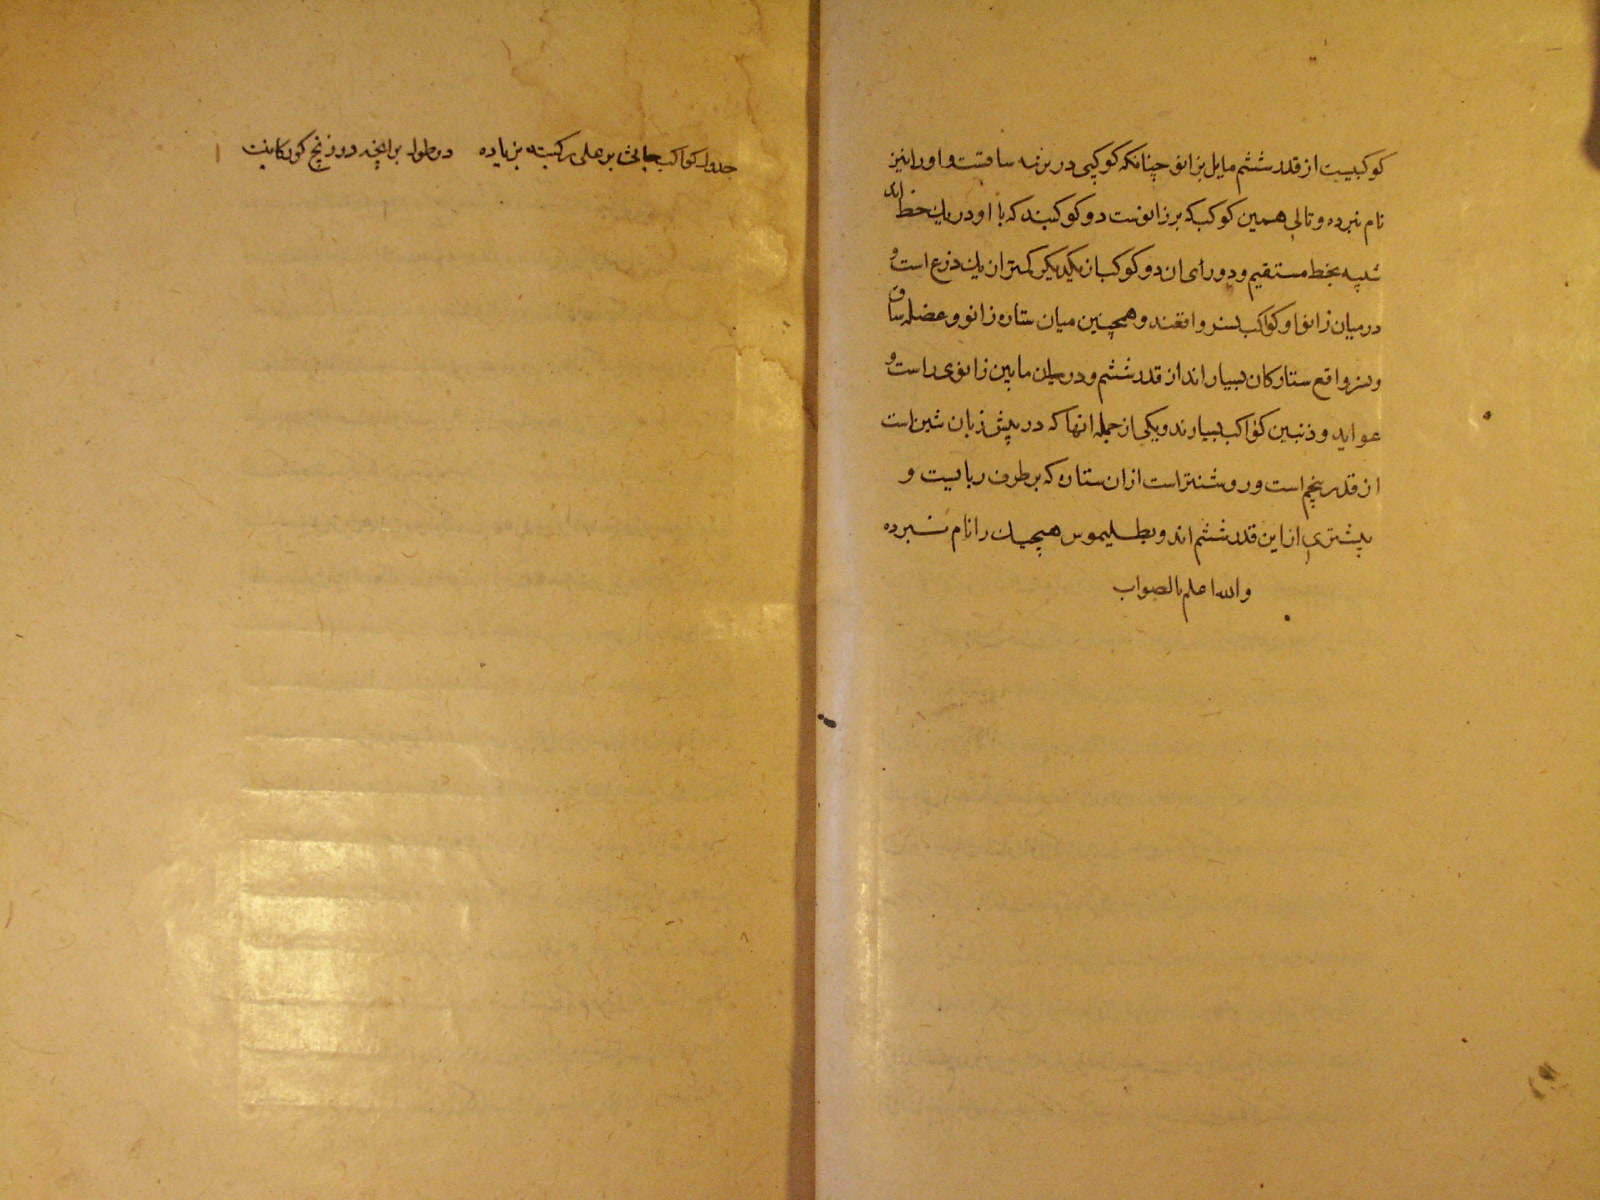 کوکبیست از قدر ششم مایل بزانو چنانکه کوکبی در برنمه ساقتست و او را نیز
نام نبرده و تالی همین کوکب که بر زانوست دو کوکبند که با او در یک خط اند
شبیه بخط مستقیم و دورای ان دو کوکب از یکدیکر کمتر از یک ذرع است و
در میان زانو او کواکب نسر واقعند و همچنین میان ستاره زانو و عضله ساق
و نسر واقع ستارکان بسیار اند از قدر ششم و در میان ما بین زانوی راست و
عواید و ذنبین کواکب بسیارند و یکی از جمله انها که در پیش زبان تنین است
از قدر پنجم است و روشنتر است از ان ستاره که بر طرف ربابیت و
بیشتری از این قدر ششم اند و بطلیموس هیچیک را نام نبرده
والله اعلم بالصواب
جدول کواکب جاثی بر علی رکبتیه بزیاده در طول بر انچه در زیج کورکانیت